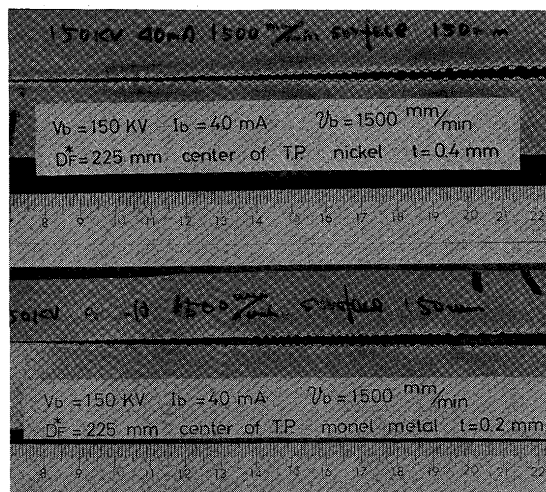 150KV 40mA 1500 mm/min surface 150mm
Vb=150 KV Ib=40 mA Vb=1500 mm/min
DF*=225 mm center of T.P. nickel t=0.4 mm
8 9 10 11 12 13 14 15 16 17 18 19 20 21 22
50KV 1500 mm/min surface 150mm
Vb=150 KV Ib=40 mA Vb=1500 mm/min
DF=225 mm center of T.P. monel metal t=0.2 mm
8 9 10 11 12 13 14 15 16 17 18 19 20 21 22